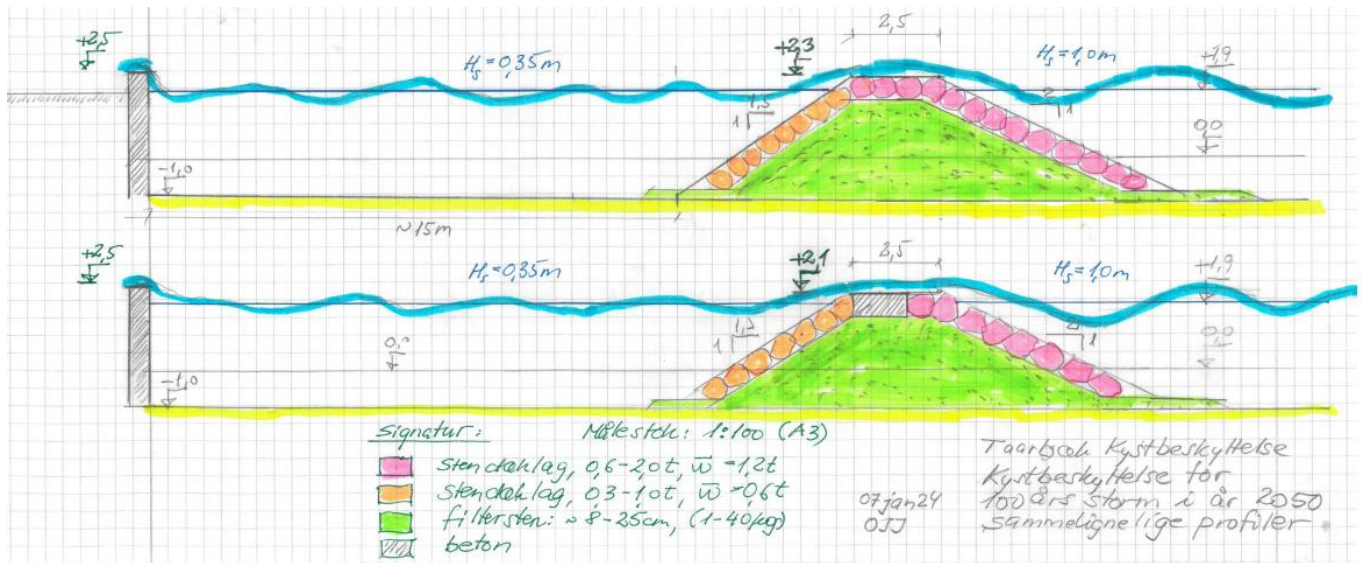 +2,5
Hs=0,35m
+2,3
2,5
Hs=1,0m
+1,9
1,5
1
2
1
0,0
-1,0
~15m
+2,5
Hs=0,35m
+2,1
2,5
Hs=1,0m
+1,9
1,5
1
2
1
0,0
0,0
-1,0
Signatur:
Målestok: 1:100 (A3)
Stendæklag, 0,6-2,0t, w̄=1,2t
Stendæklag, 0,3-1,0t, w̄=0,6t
filtersten: ~8-25cm, (1-40kg)
beton
07jan24
OJJ
Taarbæk Kystbeskyttelse
Kystbeskyttelse for
100 års storm i år 2050
Sammelignelige profiler